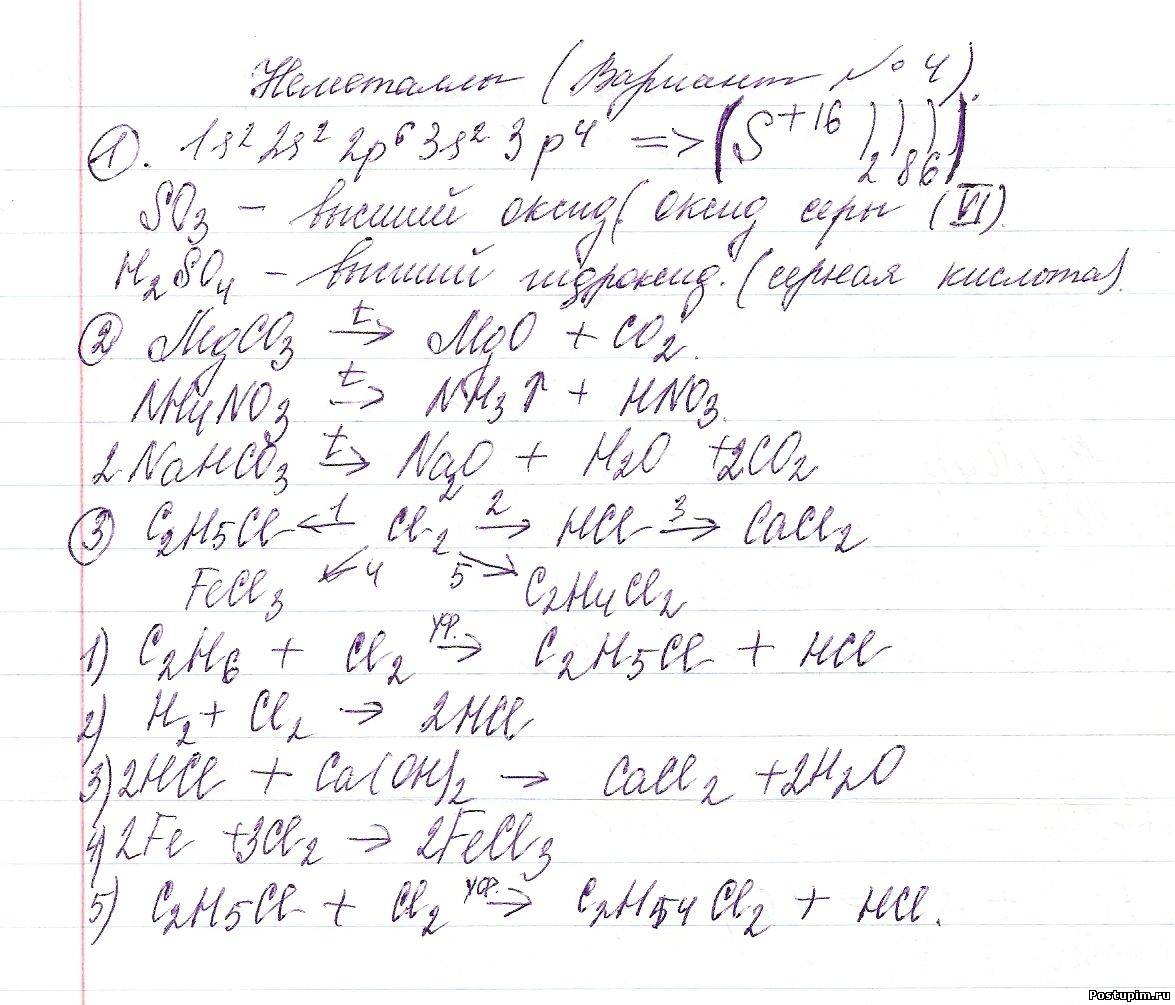 Неметаллы (Вариант № 4).
1. 1s² 2s² 2p⁶ 3s² 3p⁴ => (S⁺¹⁶ ) ) ) ₂ ₈ ₆)
SO₃ – высший оксид (оксид серы (VI).
H₂SO₄ – высший гидроксид. (серная кислота).
2 MgCO₃ t→ MgO + CO₂.
NH₄NO₃ t→ NH₃↑ + HNO₃.
2NaHCO₃ t→ Na₂O + H₂O + 2CO₂
3 C₂H₅Cl ←1 Cl₂ 2→ HCl 3→ CaCl₂
FeCl₃ ↙4 5↘ C₂H₄Cl₂
1) C₂H₆ + Cl₂ уф.→ C₂H₅Cl + HCl
2) H₂ + Cl₂ → 2HCl
3) 2HCl + Ca(OH)₂ → CaCl₂ + 2H₂O
4) 2Fe + 3Cl₂ → 2FeCl₃
5) C₂H₅Cl + Cl₂ уф.→ C₂H₄Cl₂ + HCl.
Postupim.ru